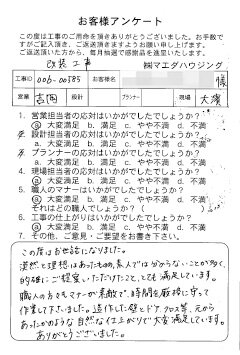 お客様アンケート
この度は工事のご用命を頂きありがとうございました。お手数で
すがご記入頂き、ご返送頂きますようお願い申し上げます。
ご返送いただきましたら、毎月抽選で感謝品を進呈いたします。
改装工事
㈱マエダハウジング
工事ID 006-00585 お客様名 様
営業 吉岡 設計 プランナー 現場 大濱
1. 営業担当者の応対はいかがでしたでしょうか?
a 大変満足 b. 満足 c. やや不満 d. 不満
2 設計担当者の応対はいかがでしたでしょうか?
a 大変満足 b. 満足 c. やや不満 d. 不満
3 プランナーの応対はいかがでしたでしょうか?
a. 大変満足 b. 満足 c. やや不満 d. 不満
4. 現場担当者の応対はいかがでしたでしょうか?
a 大変満足 b. 満足 c. やや不満 d. 不満
5. 職人のマナーはいかがでしたでしょうか?
a 大変満足 b. 満足 c. やや不満 d. 不満
それはどの職人でしょうか? ( )
6. 工事の仕上がりはいかがでしたでしょうか?
a 大変満足 b. 満足 c. やや不満 d. 不満
7. その他、ご意見・ご要望をお書き下さい。
この度はお世話になりました。
漠然と理想はあったものの、素人では分からないことが多く
的確にご提案いただけたこと、とても満足しています。
職人の方々もマナーが素敵で、時間を厳格に守って
作業して下さいました。造作した壁とドア、クロス等、元から
あったかのような自然な仕上がりで大変満足しています。
ありがとうございました。